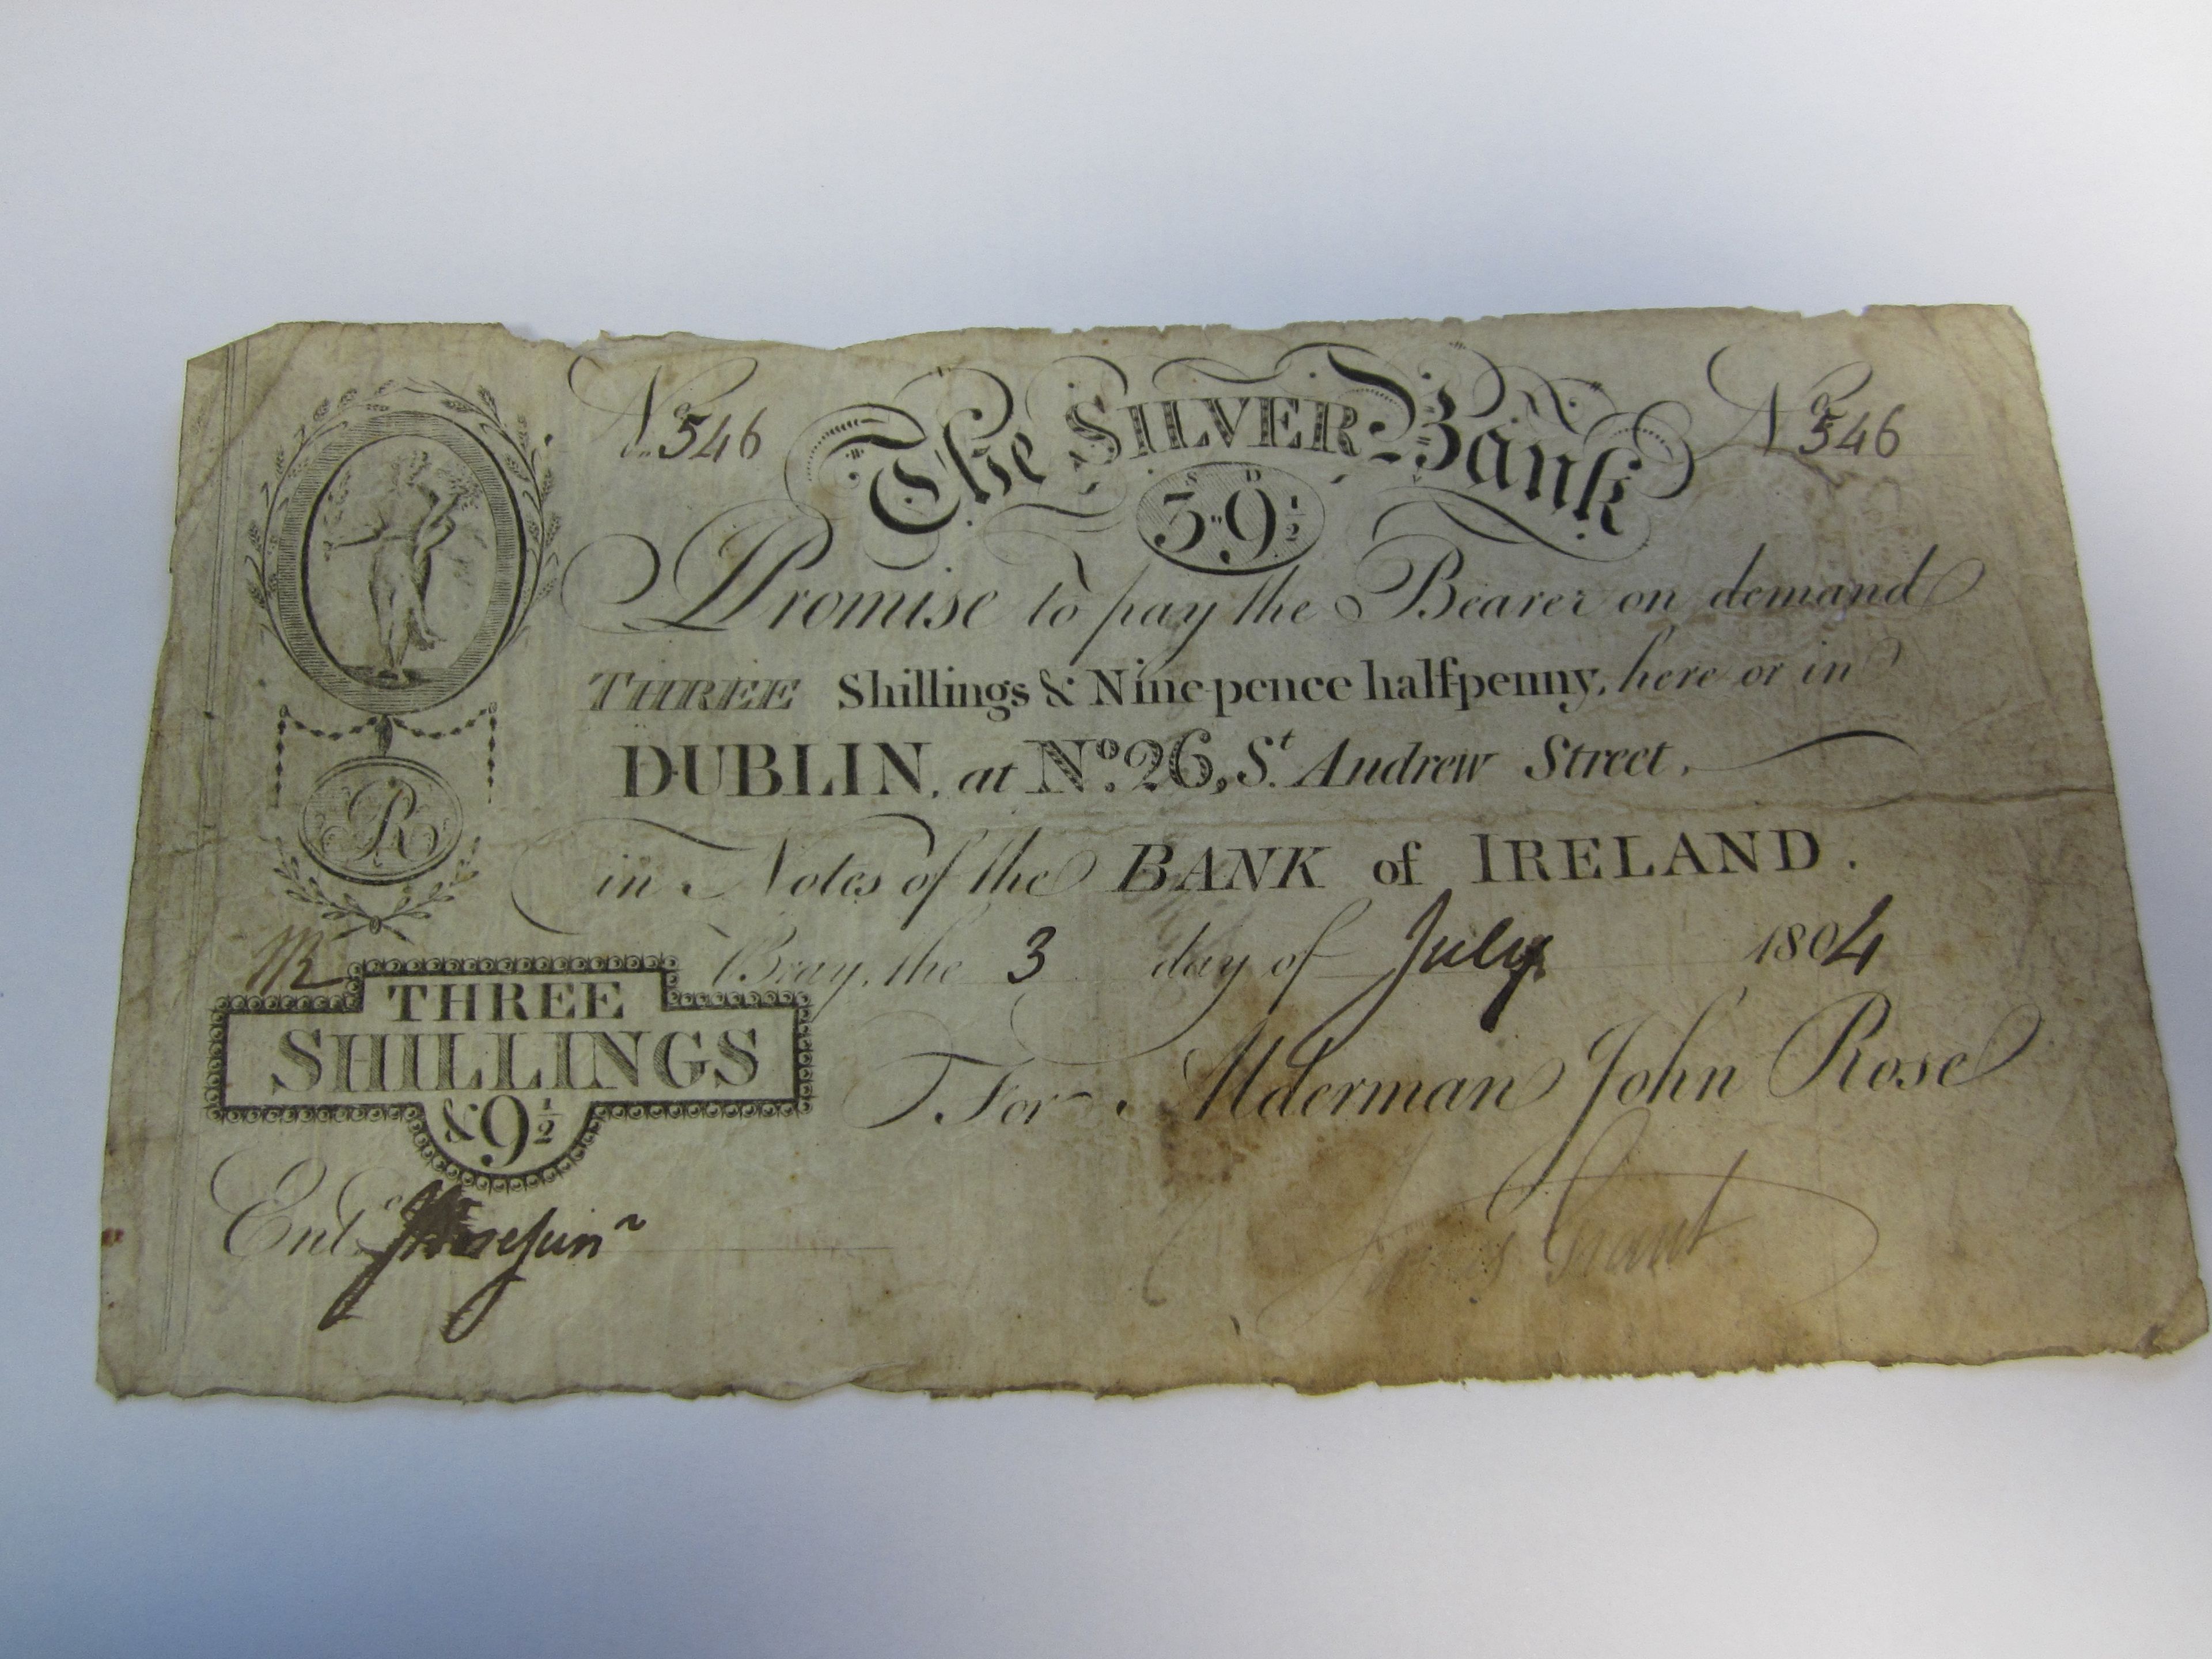 No 546 The SILVER Bank No 546
S D
3"9½
Promise to pay the Bearer on demand
THREE Shillings & Nine-pence halfpenny, here or in
DUBLIN, at No. 26, St. Andrew Street,
in Notes of the BANK of IRELAND.
R
Bray, the 3 day of July 1804
THREE
SHILLINGS
& 9½
For Alderman John Rose
Grant
Entd.